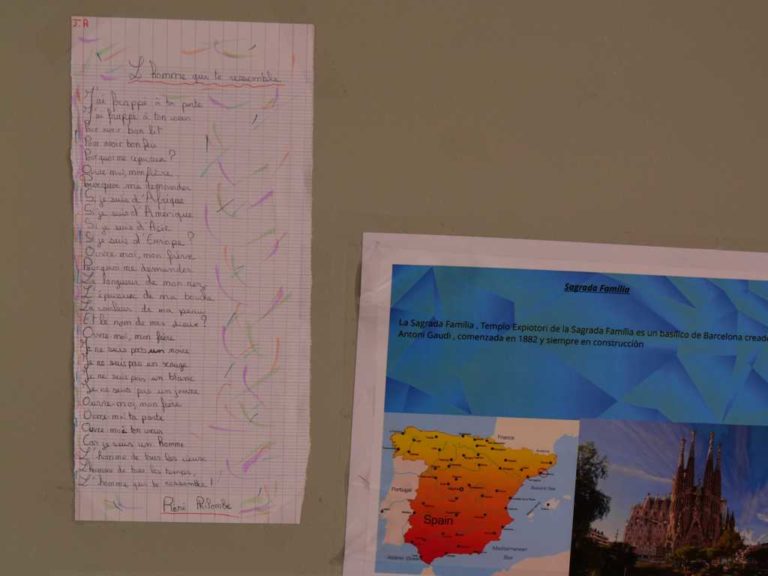 5°A
L'homme qui te ressemble
J'ai frappé à ta porte
J'ai frappé à ton cœur
Pour avoir bon lit
Pour avoir bon feu
Pourquoi me repousser ?
Ouvre moi, mon frère
Pourquoi me demander
Si je suis d'Afrique
Si je suis d'Amérique
Si je suis d'Asie
Si je suis d'Europe ?
Ouvre moi, mon frère
Pourquoi me demander
La longueur de mon nez
L'épaisseur de ma bouche
La couleur de ma peau
Et le nom de mes dieux ?
Ouvre moi, mon frère
Je ne suis pas un noire
Je ne suis pas un rouge
Je ne suis pas un blanc
Je ne suis pas un jaune
Ouvre-moi, mon frère
Ouvre-moi ta porte
Ouvre-moi ton cœur
Car je suis un homme
L'homme de tous les cieux
L'homme de tous les temps,
L'homme qui te ressemble !
René Philombe
Sagrada Familia
La Sagrada Familia , Templo Expiotori de la Sagrada Familia es un basílico de Barcelona cread
Antoni Gaudi , comenzada en 1882 y siempre en construcción
France
Portugal
Spain
Mediterranean
Sea